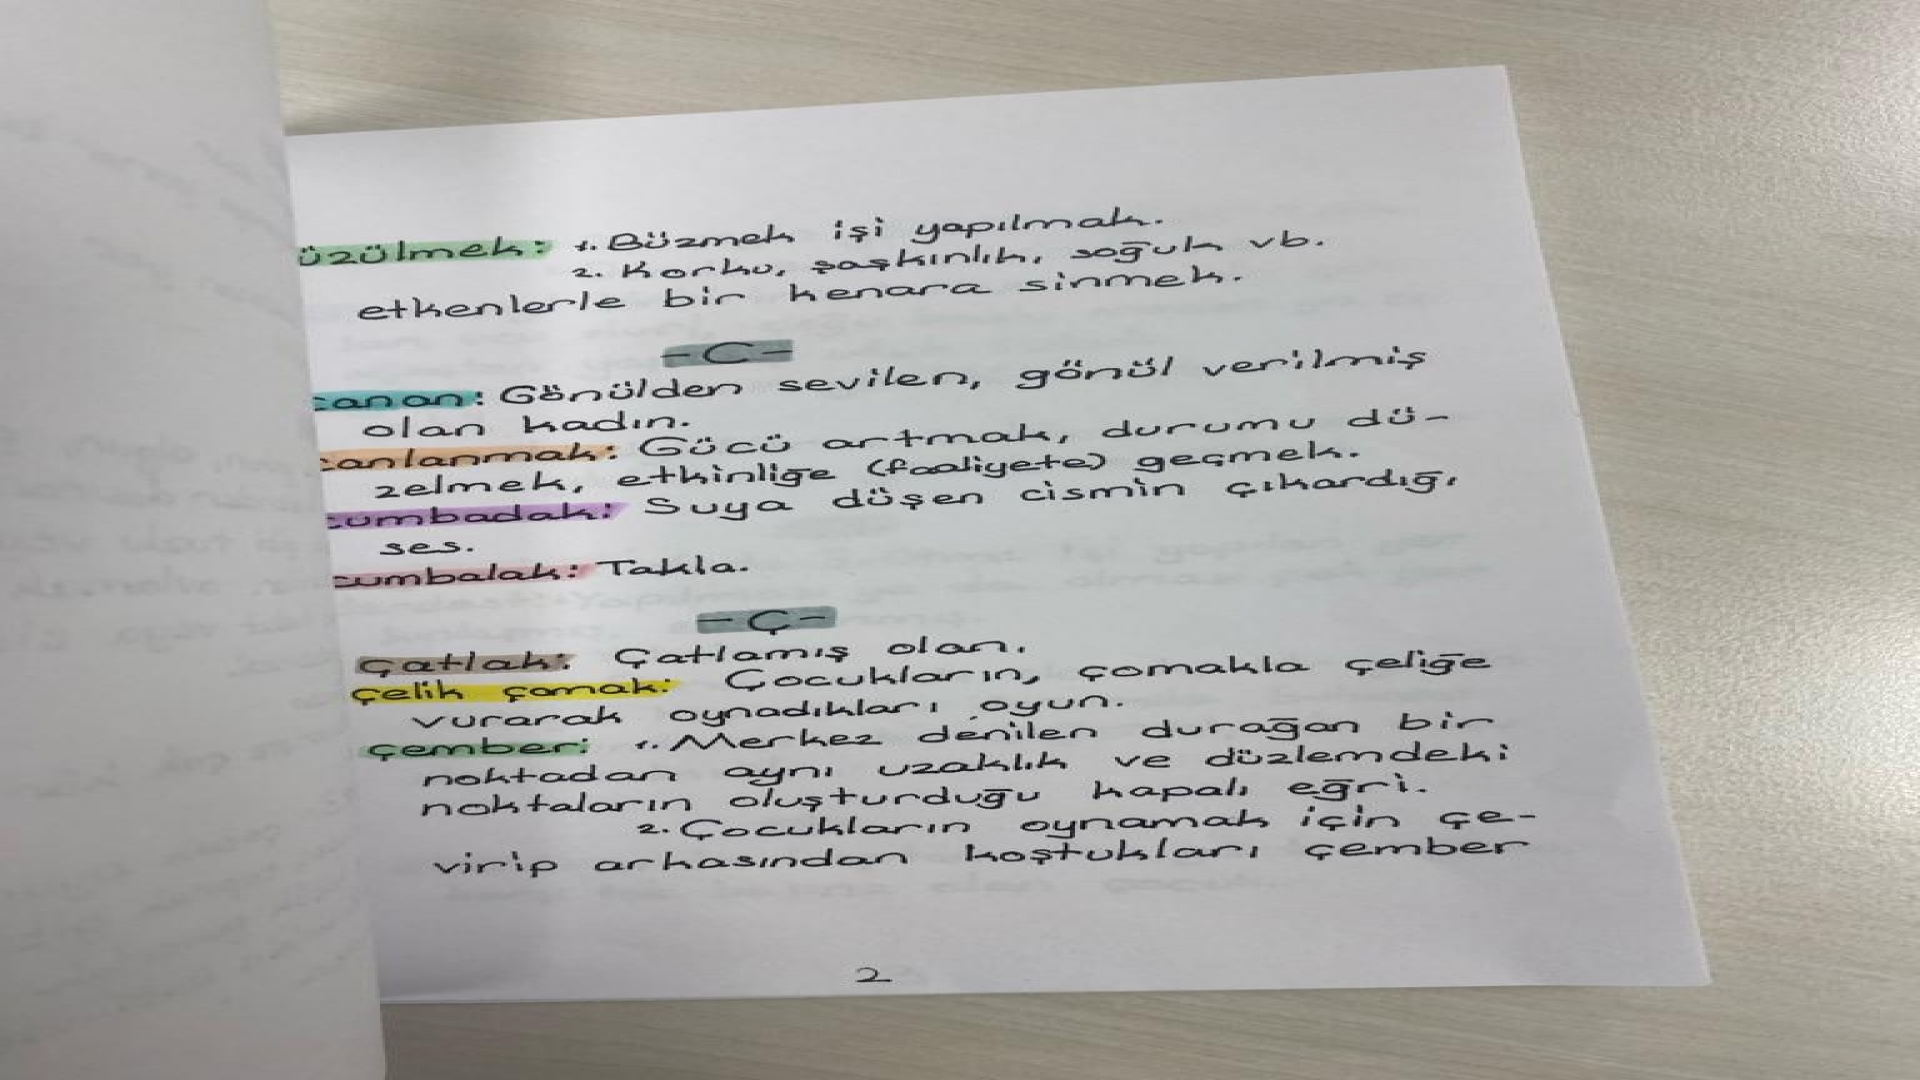 üzülmek: 1. Büzmek işi yapılmak.
2. Korku, şaşkınlık, soğuk vb.
etkenlerle bir kenara sinmek.
-C-
canan: Gönülden sevilen, gönül verilmiş
olan kadın.
canlanmak: Gücü artmak, durumu dü-
zelmek, etkinliğe (faaliyete) geçmek.
cumbadak: Suya düşen cismin çıkardığı
ses.
cumbalak: Takla.
-Ç-
çatlak: Çatlamış olan.
çelik çomak: Çocukların, çomakla çeliğe
vurarak oynadıkları oyun.
çember: 1. Merkez denilen durağan bir
noktadan aynı uzaklık ve düzlemdeki
noktaların oluşturduğu kapalı eğri.
2. Çocukların oynamak için çe-
virip arkasından koştukları çember
2